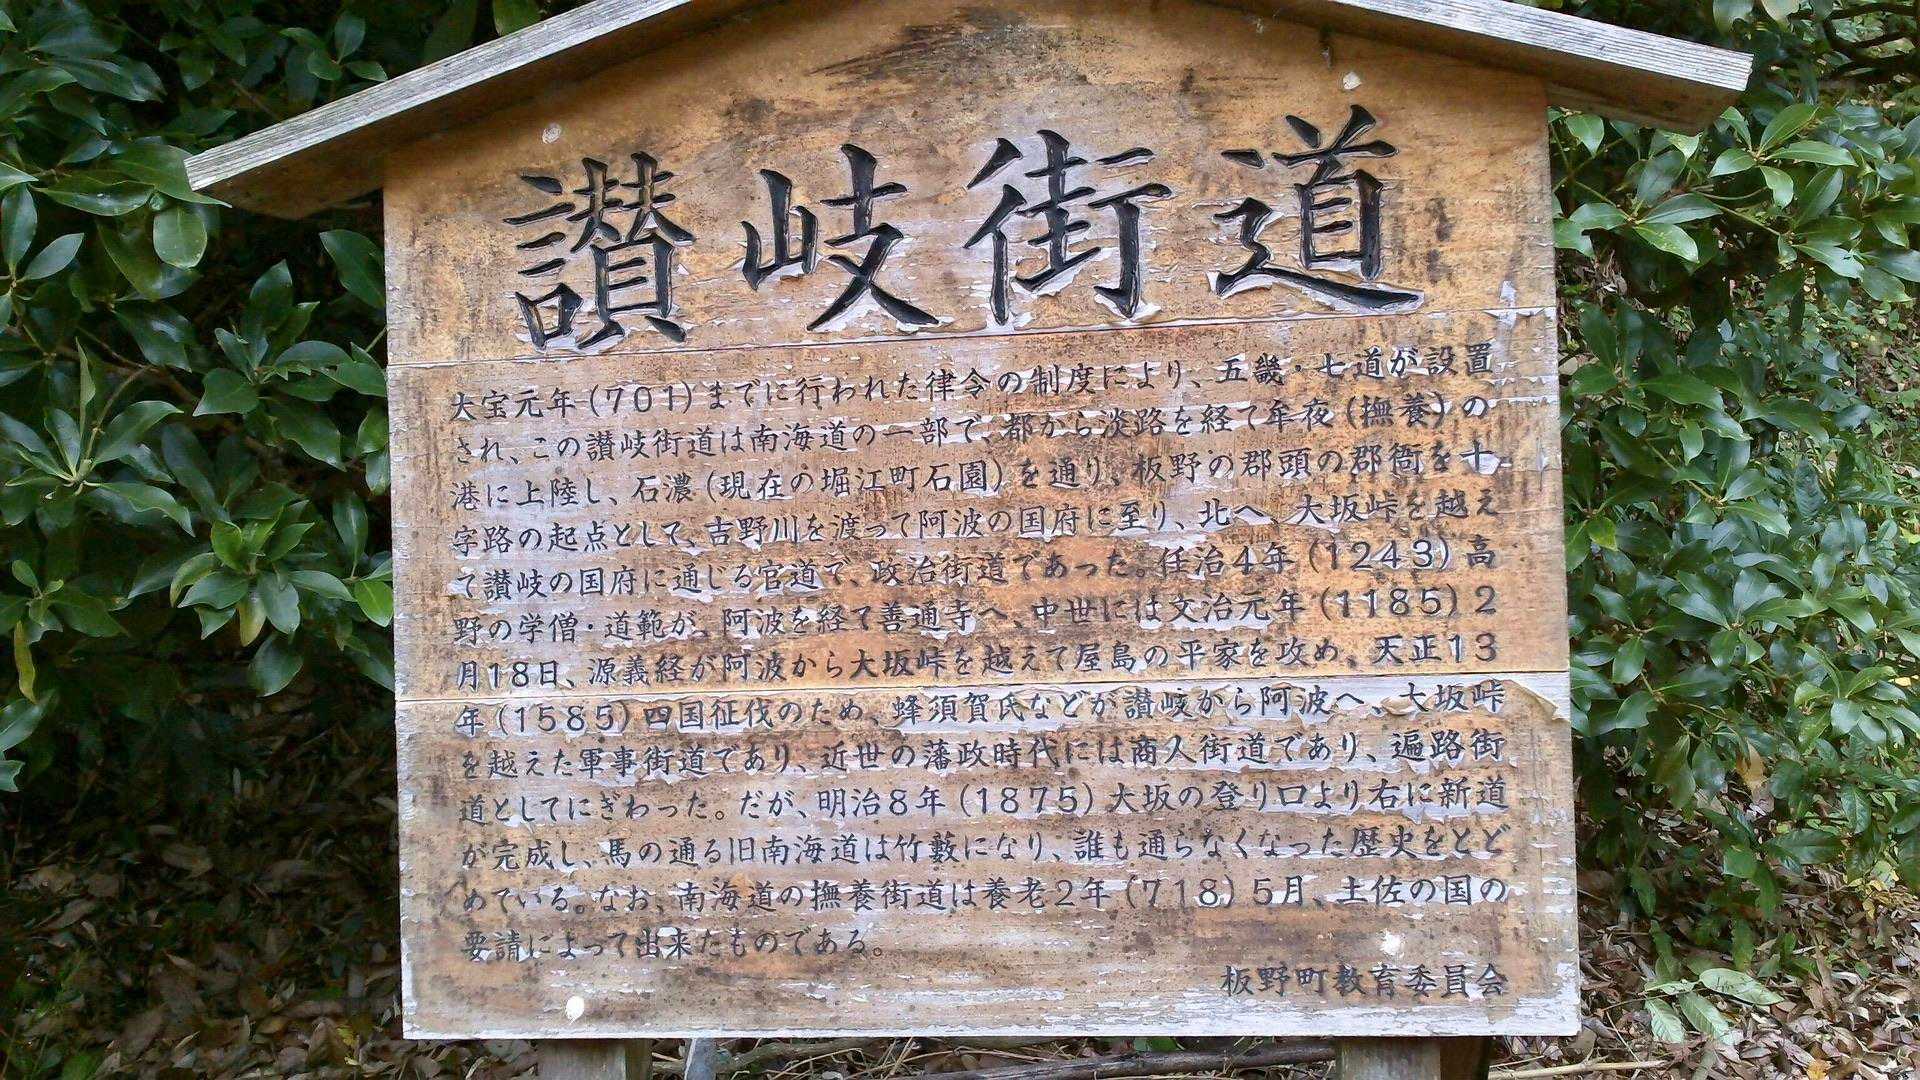 讃岐街道
大宝元年(701)までに行われた律令の制度により、五畿・七道が設置
され、この讃岐街道は南海道の一部で、都から淡路を経て牟夜(撫養)の
港に上陸し、石濃(現在の堀江町石園)を通り、板野の郡頭の郡衙を十
字路の起点として、吉野川を渡って阿波の国府に至り、北へ、大坂峠を越え
て讃岐の国府に通じる官道で、政治街道であった。任治4年(1243)高
野の学僧・道範が、阿波を経て善通寺へ、中世には文治元年(1185)2
月18日、源義経が阿波から大坂峠を越えて屋島の平家を攻め、天正13
年(1585)四国征伐のため、蜂須賀氏などが讃岐から阿波へ、大坂峠
を越えた軍事街道であり、近世の藩政時代には商人街道であり、遍路街
道としてにぎわった。だが、明治8年(1875)大坂の登り口より右に新道
が完成し、馬の通る旧南海道は竹藪になり、誰も通らなくなった歴史をとど
めている。なお、南海道の撫養街道は養老2年(718)5月、土佐の国の
要請によって出来たものである。
板野町教育委員会